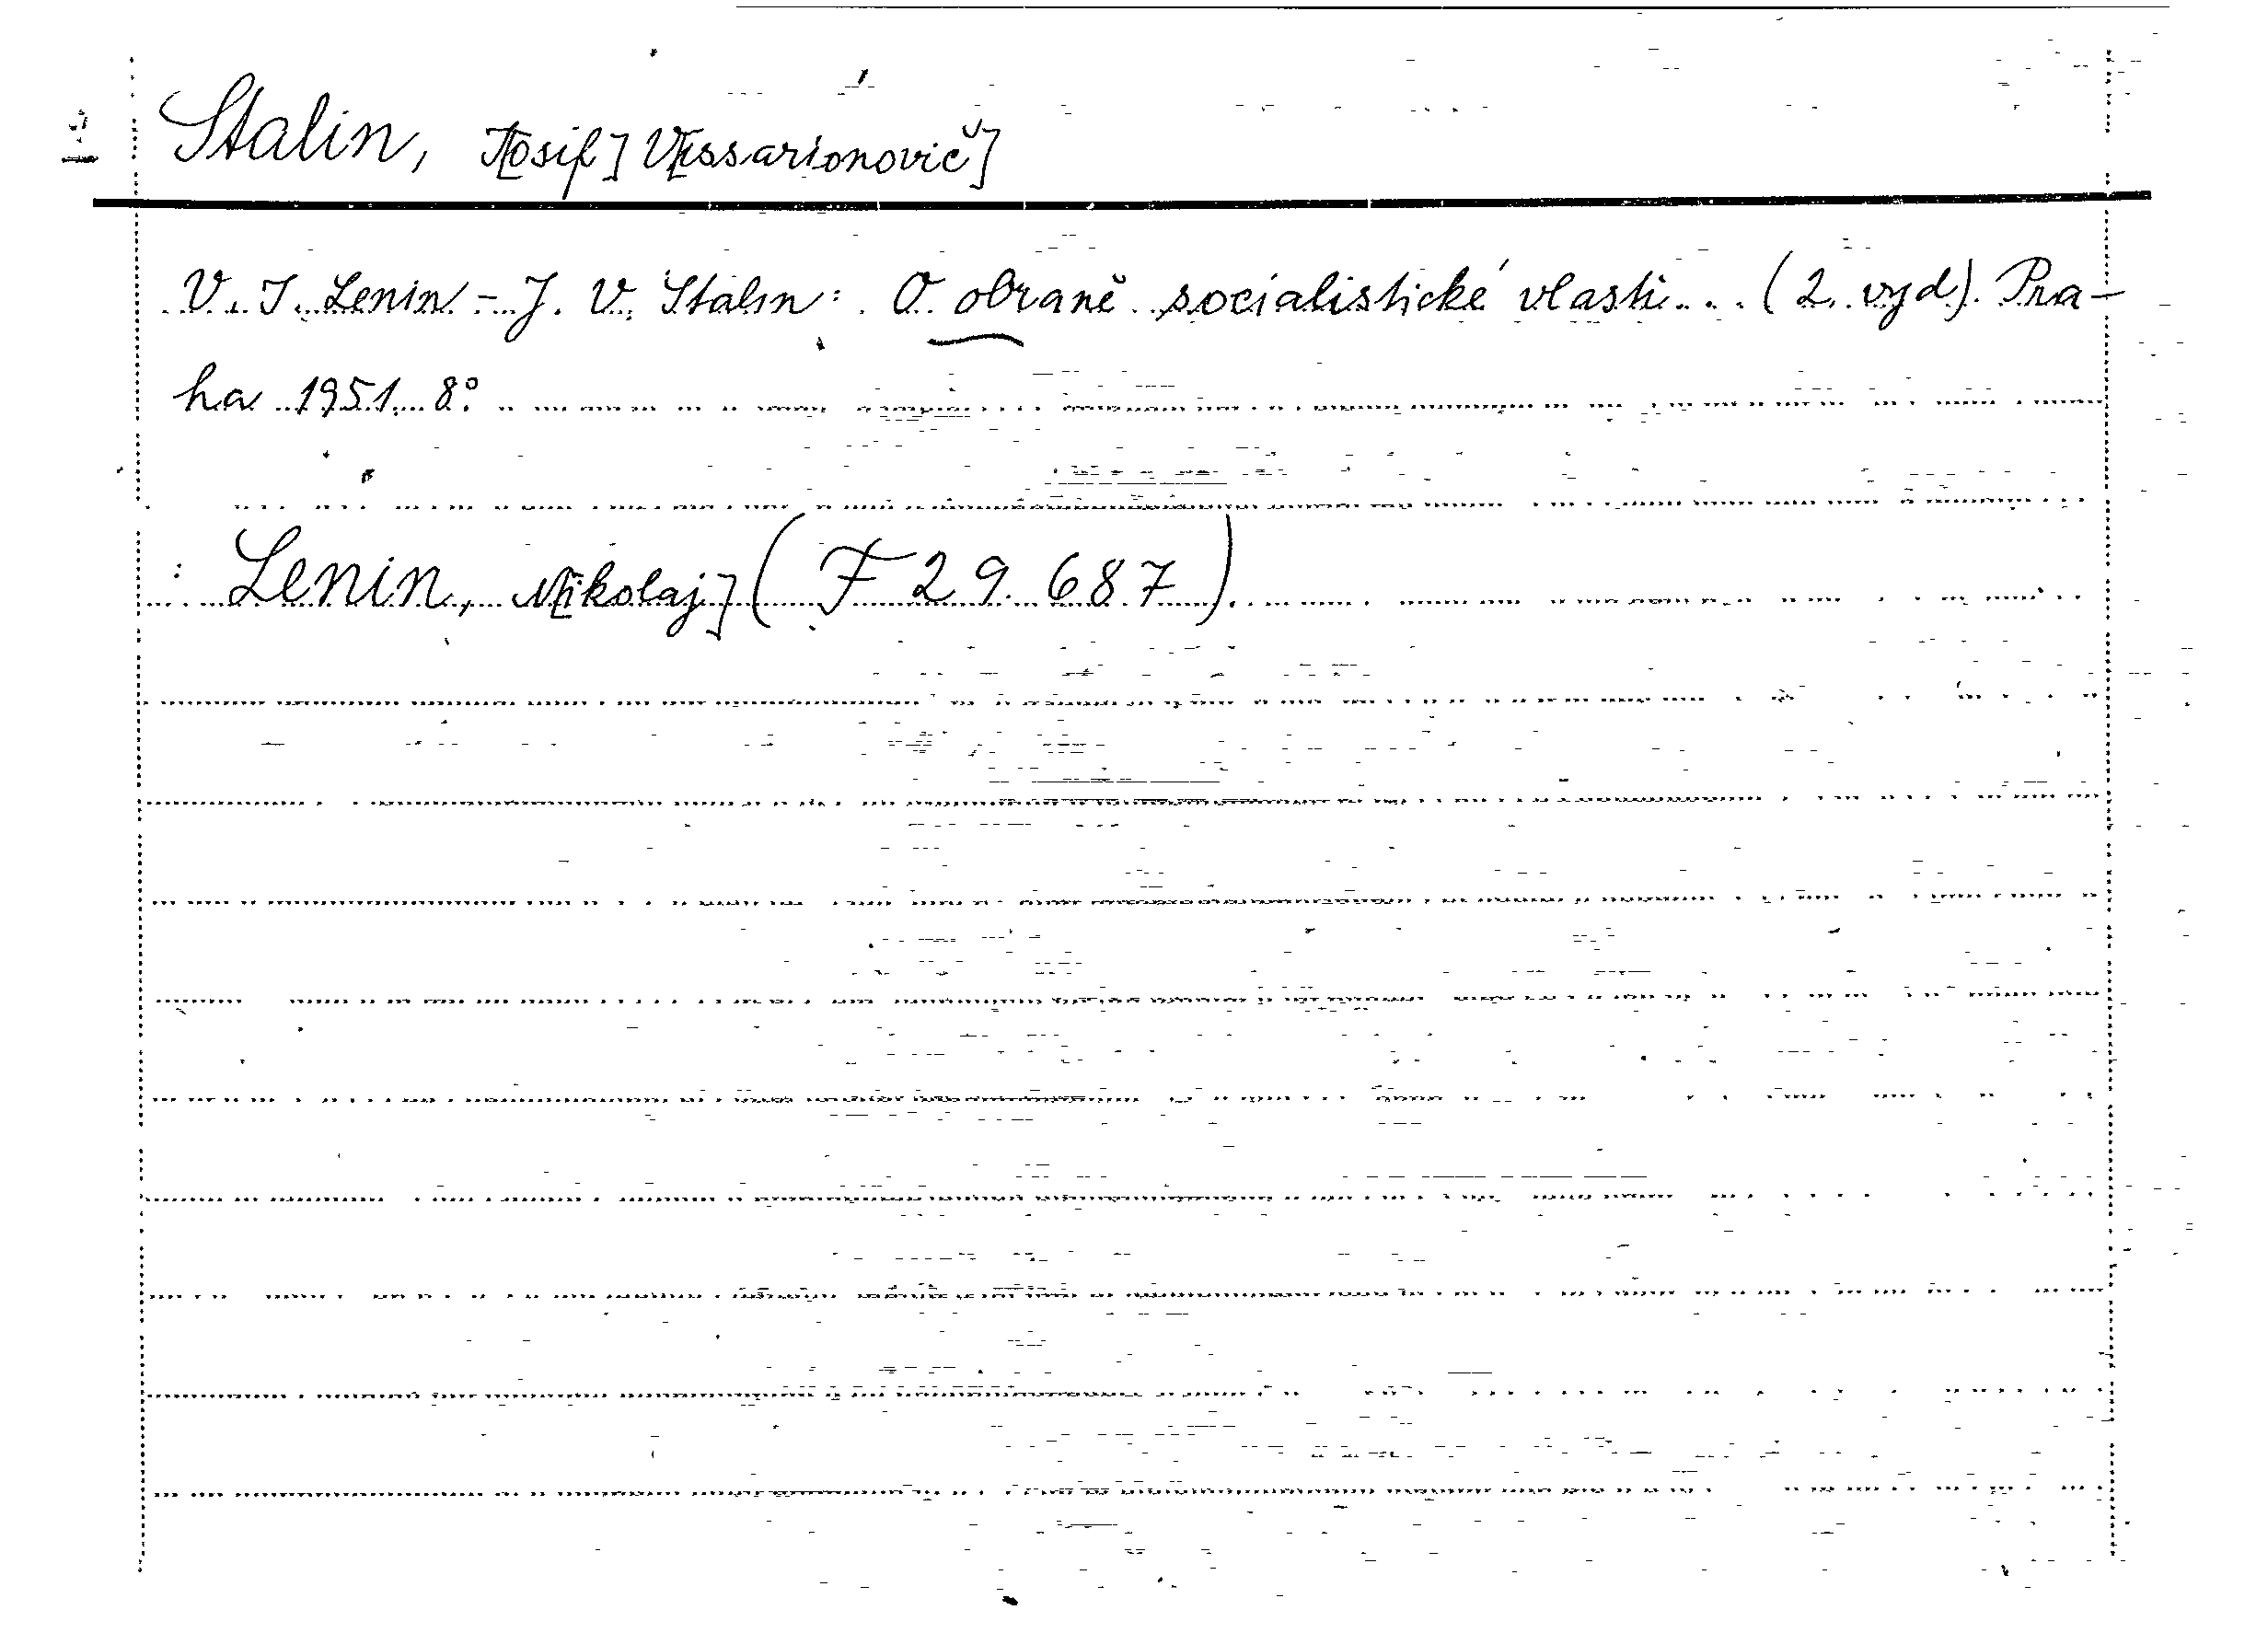 Stalin, J[osif] V[issarionovič]
V. I. Lenin - J. V. Stalin: O obraně socialistické vlasti... (2. vyd). Pra-
ha 1951. 8°.
: Lenin, N[ikolaj] (F 29.687).